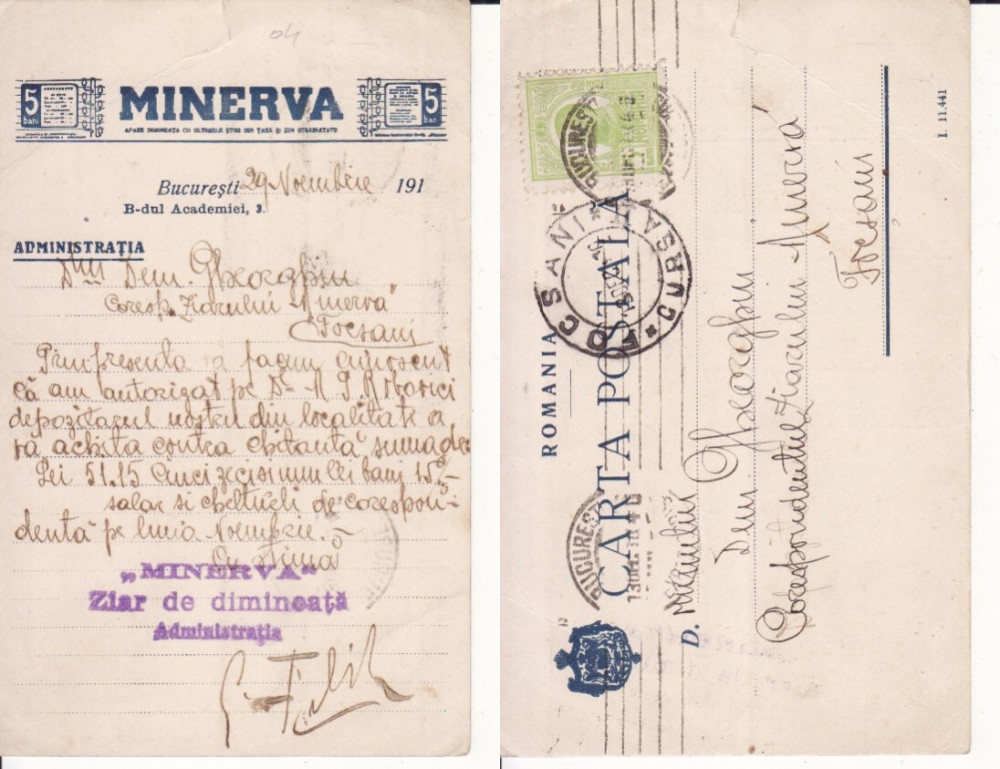 04
5
bani
MINERVA
5
bani
APARE DIMINEAȚA CU ULTIMELE ȘTIRI DIN ȚARĂ ȘI DIN STRĂINĂTATE
București 29 Noembrie 191
B-dul Academiei, 3.
ADMINISTRAȚIA
Dlui Dem. Gheorghiu
Coresp. Ziarului "Minerva"
Focsani
Prin presenta va facem cunoscut
că am autorizat pe Dl
depozitarul nostru din localitate a
vă achita contra chitanță suma de
Lei 51.15 Cincizecisiunu lei bani 15
salar si cheltueli de corespon-
dență pe luna Noembrie.
Cu stimă
„MINERVA"
Ziar de dimineață
Administrația
ROMANIA
CARTA POSTALĂ
BUCUREST
FOCSANI
CURSA
BUCURESTI
D.
Dem Gheorghiu
Corespondentul Ziarului Minerva
Focsani
I. 11.441
12